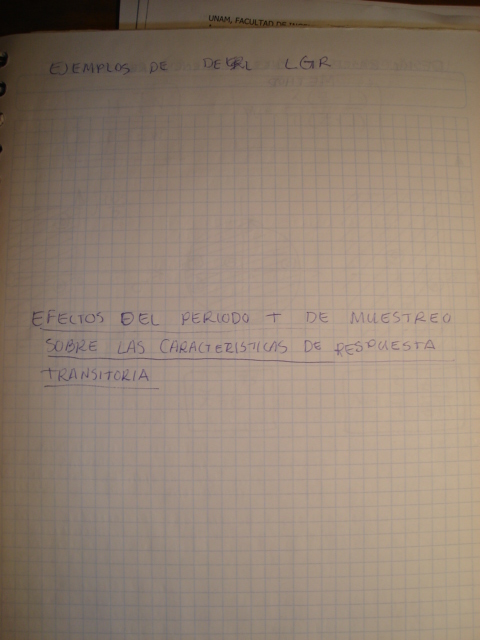 UNAM, FACULTAD DE
EJEMPLOS DE DEL LGR
EFECTOS DEL PERIODO T DE MUESTREO
SOBRE LAS CARACTERISTICAS DE RESPUESTA
TRANSITORIA